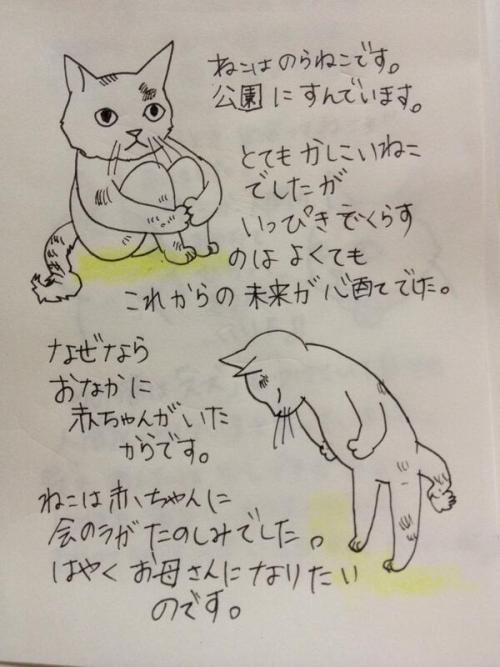 ねこは のらねこです。
公園にすんでいます。
とてもかしこいねこ
でしたが
いっぴきでくらす
のは よくても
これからの未来が心配でした。
なぜなら
おなかに
赤ちゃんがいた
からです。
ねこは赤ちゃんに
会のうがたのしみでした。
はやくお母さんになりたい
のです。